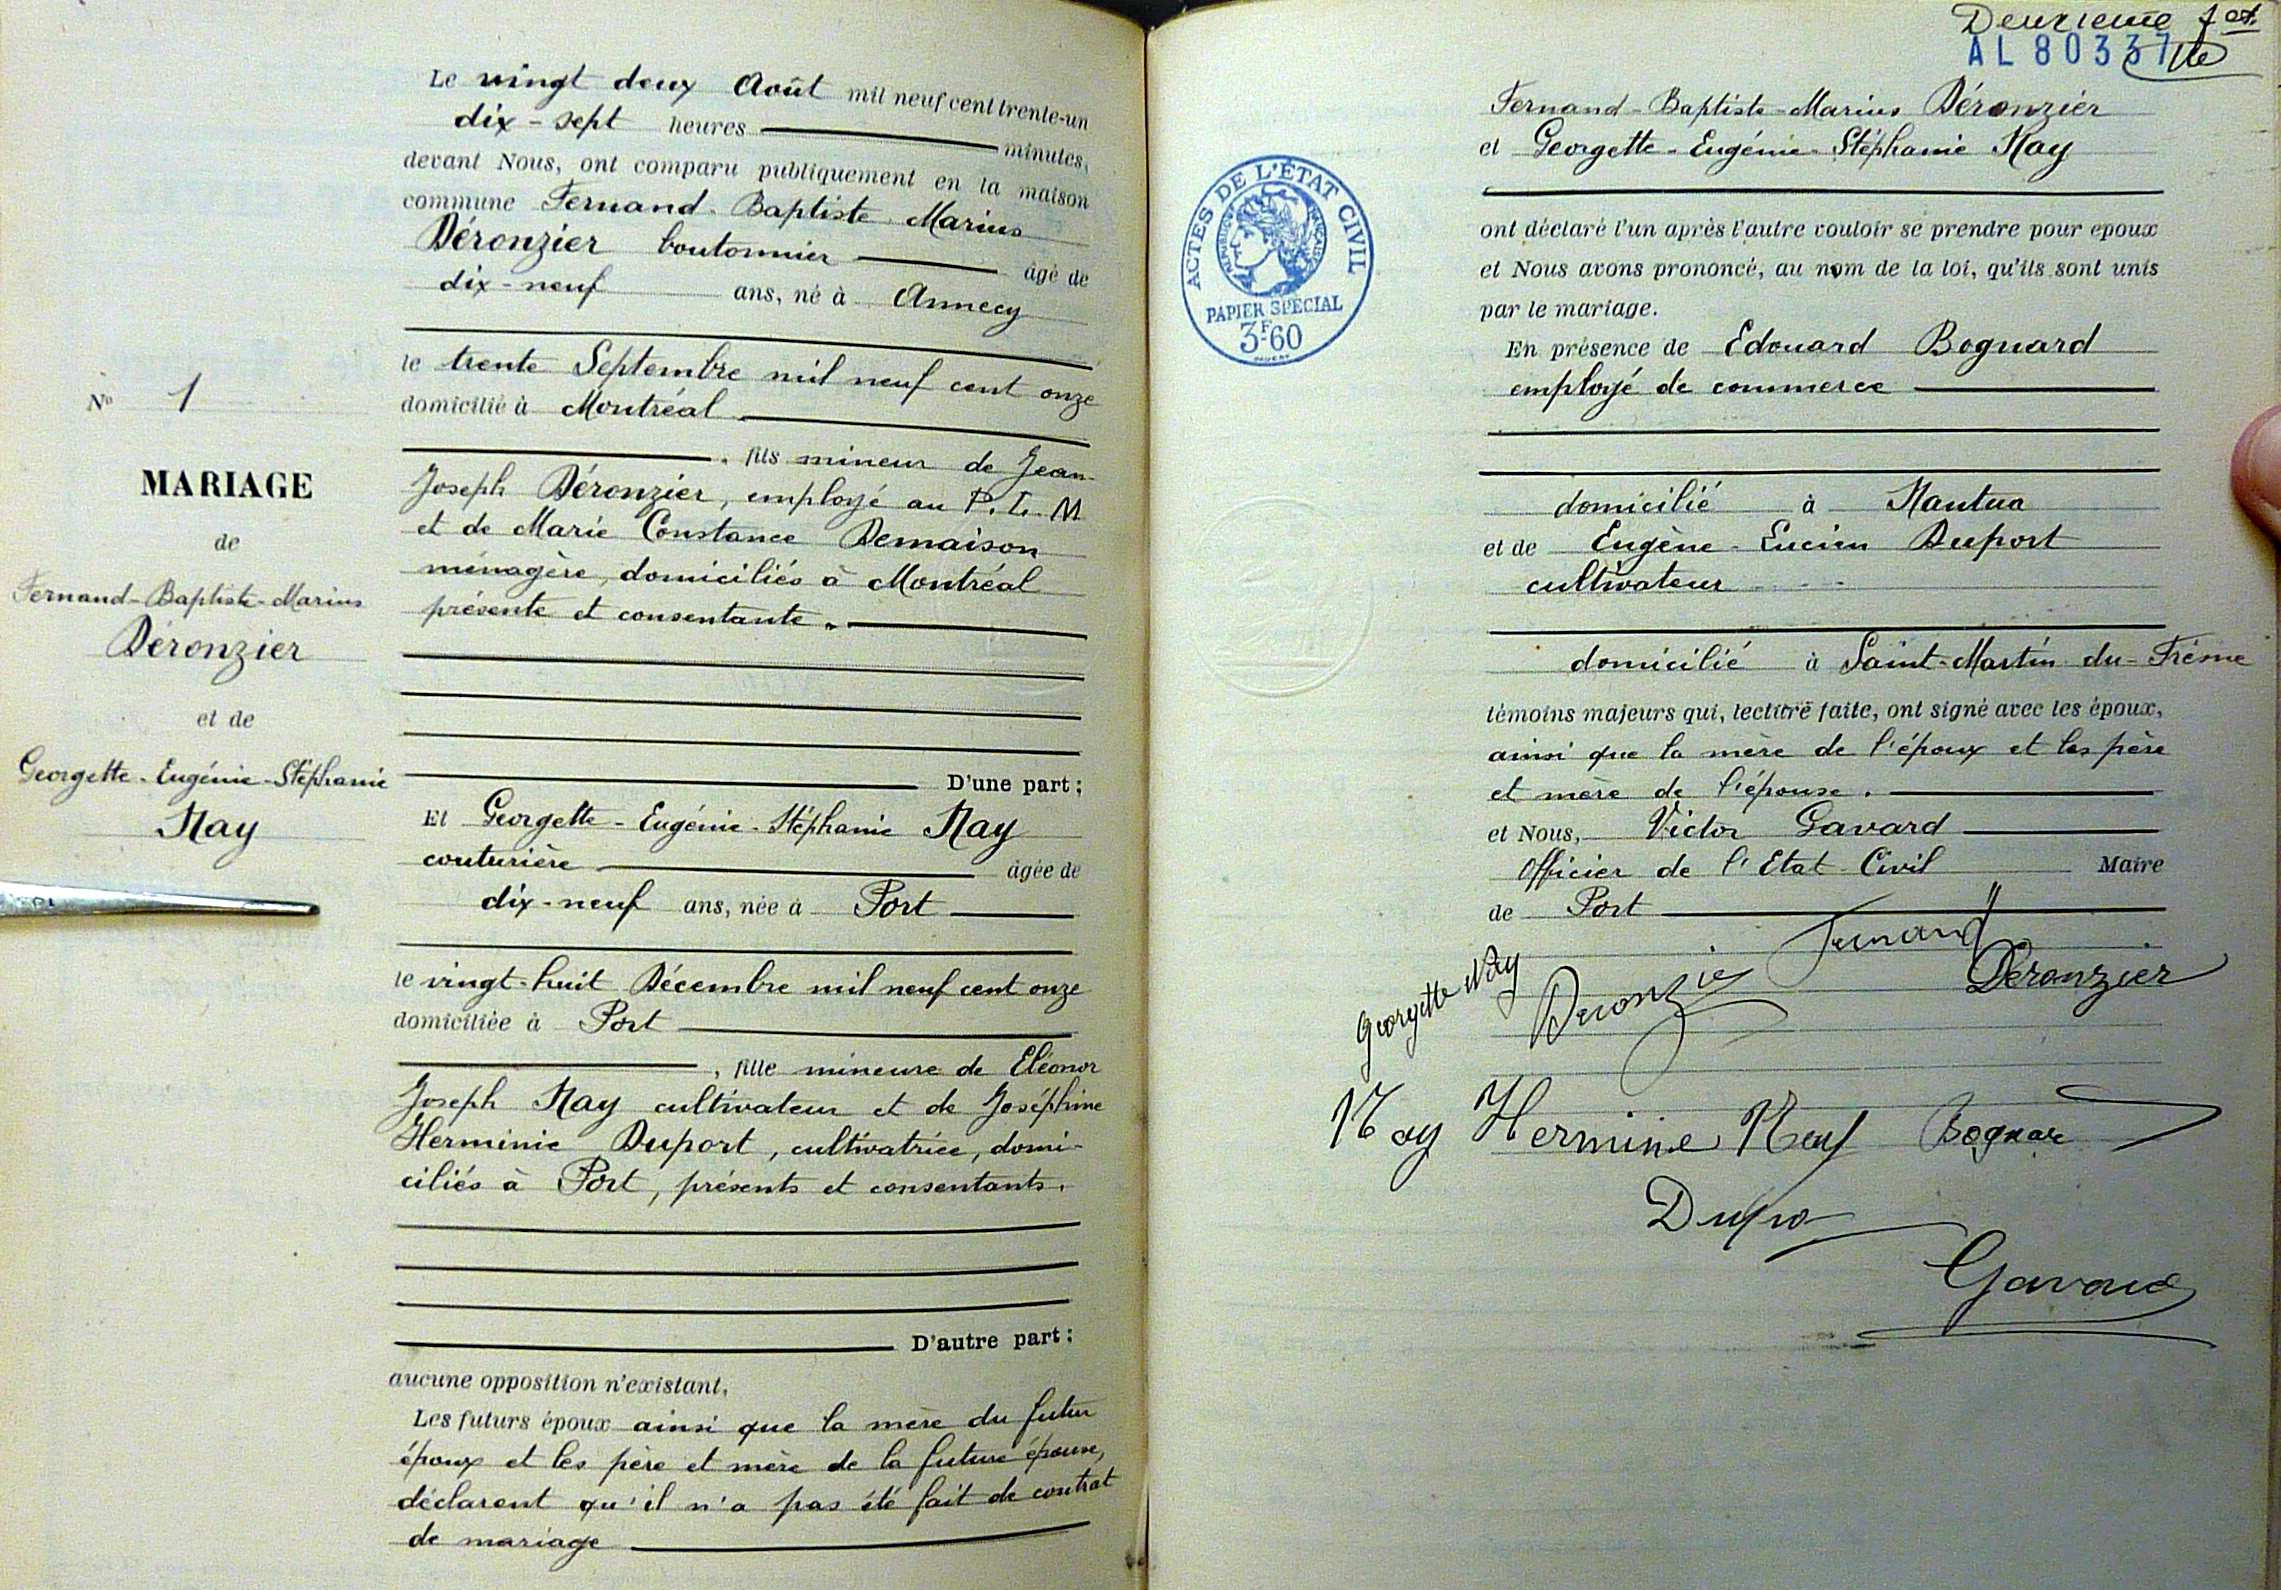 Le vingt deux Août mil neuf cent trente-un
dix-sept heures minutes,
devant Nous, ont comparu publiquement en la maison
commune Fernand-Baptiste-Marius
Déronzier boutonnier âgé de
dix-neuf ans, né à Annecy
le trente Septembre mil neuf cent onze
domicilié à Montréal
, fils mineur de Jean-
Joseph Déronzier, employé au P.L.M
et de Marie Constance Demaison
ménagère, domiciliés à Montréal
présente et consentante.
D'une part;
Et Georgette-Eugénie-Stéphanie Nay
couturière âgée de
dix-neuf ans, née à Port
le vingt-huit Décembre mil neuf cent onze
domiciliée à Port
, fille mineure de Eléonor
Joseph Nay cultivateur et de Joséphine
Herminie Duport, cultivatrice, domi-
ciliés à Port, présents et consentants.
D'autre part;
aucune opposition n'existant,
Les futurs époux ainsi que la mère du futur
époux et les père et mère de la future épouse,
déclarent qu'il n'a pas été fait de contrat
de mariage
N° 1
MARIAGE
de
Fernand-Baptiste-Marius
Déronzier
et de
Georgette-Eugénie-Stéphanie
Nay
Deuxième
AL 80337
Fernand-Baptiste-Marius Déronzier
et Georgette-Eugénie-Stéphanie Nay
ACTES DE L'ÉTAT CIVIL
RÉPUBLIQUE FRANÇAISE
PAPIER SPÉCIAL
3F60
ont déclaré l'un après l'autre vouloir se prendre pour époux
et Nous avons prononcé, au nom de la loi, qu'ils sont unis
par le mariage.
En présence de Edouard Bognard
employé de commerce
domicilié à Nantua
et de Eugène-Lucien Duport
cultivateur
domicilié à Saint-Martin-du-Frésne
témoins majeurs qui, lecture faite, ont signé avec les époux,
ainsi que la mère de l'époux et les père
et mère de l'épouse.
et Nous, Victor Gavard
Officier de l'Etat-Civil Maire
de Port
Georgette Nay
Deronzier
Fernand
Déronzier
Nay Hermine Nay Bognard
Gavard